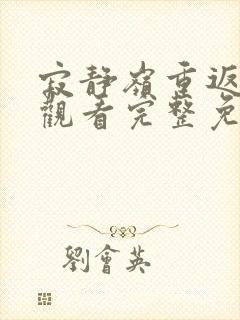 寂靜嶺重返
觀看完整免
劉會英